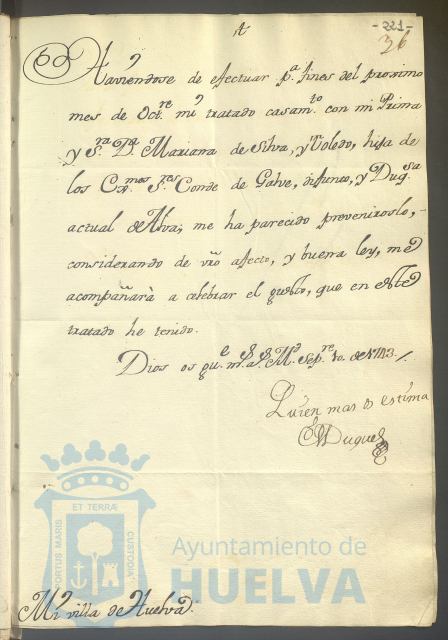 -221-
36
Haviendose de efectuar p.a fines del proximo
mes de Oct.re mi tratado casam.to con mi Prima
y S.ra D.a Mariana de Silva, y Toledo, hija de
los Ex.mos S.res Conde de Galve, difunto, y Duq.sa
actual de Alva; me ha parecido preveniroslo,
considerando de vro afecto, y buena ley, me
acompañarà a celebrar el gusto, que en este
tratado he tenido.
Dios os gu.e m.s a.s M.d Sep.re 10. de 1743.
Quien mas os estima
El Duque
ET TERRÆ
PORTUS MARIS
CUSTODIA
Ayuntamiento de
HUELVA
Mi villa de Huelva.